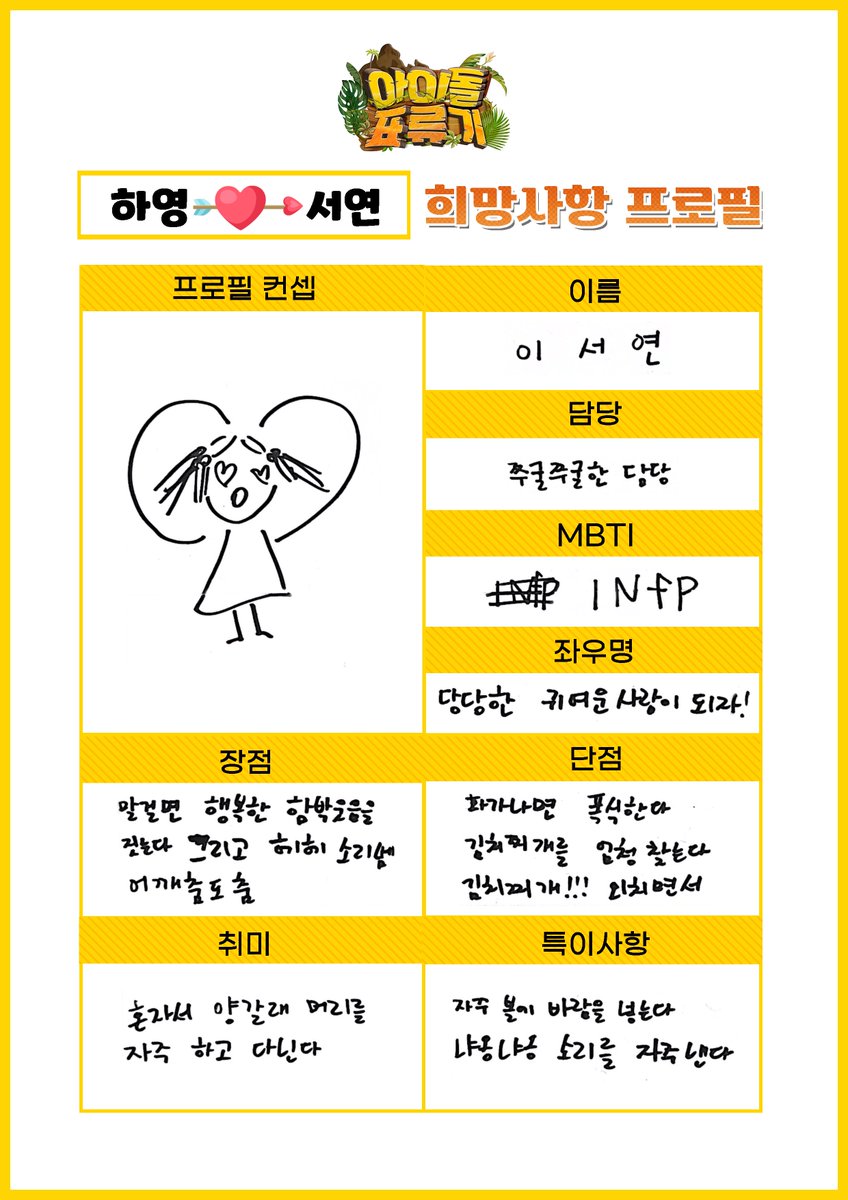 아이돌
표류기
하영 서연 희망사항 프로필
프로필 컨셉
이름
이 서 연
담당
쭈굴쭈굴한 담당
MBTI
INFP
좌우명
당당한 귀여운 사랑이 되라!
장점
말걸면 행복한 함박웃음을
짓는다 그리고 히히히 소리쌤
어깨춤도 춤
단점
화가나면 폭식한다
김치찌개를 엄청 찾는다
김치찌개!!! 외치면서
취미
혼자서 양갈래 머리를
자주 하고 다닌다
특이사항
자주 볼에 바람을 넣는다
냐옹냐옹 소리를 자주 낸다